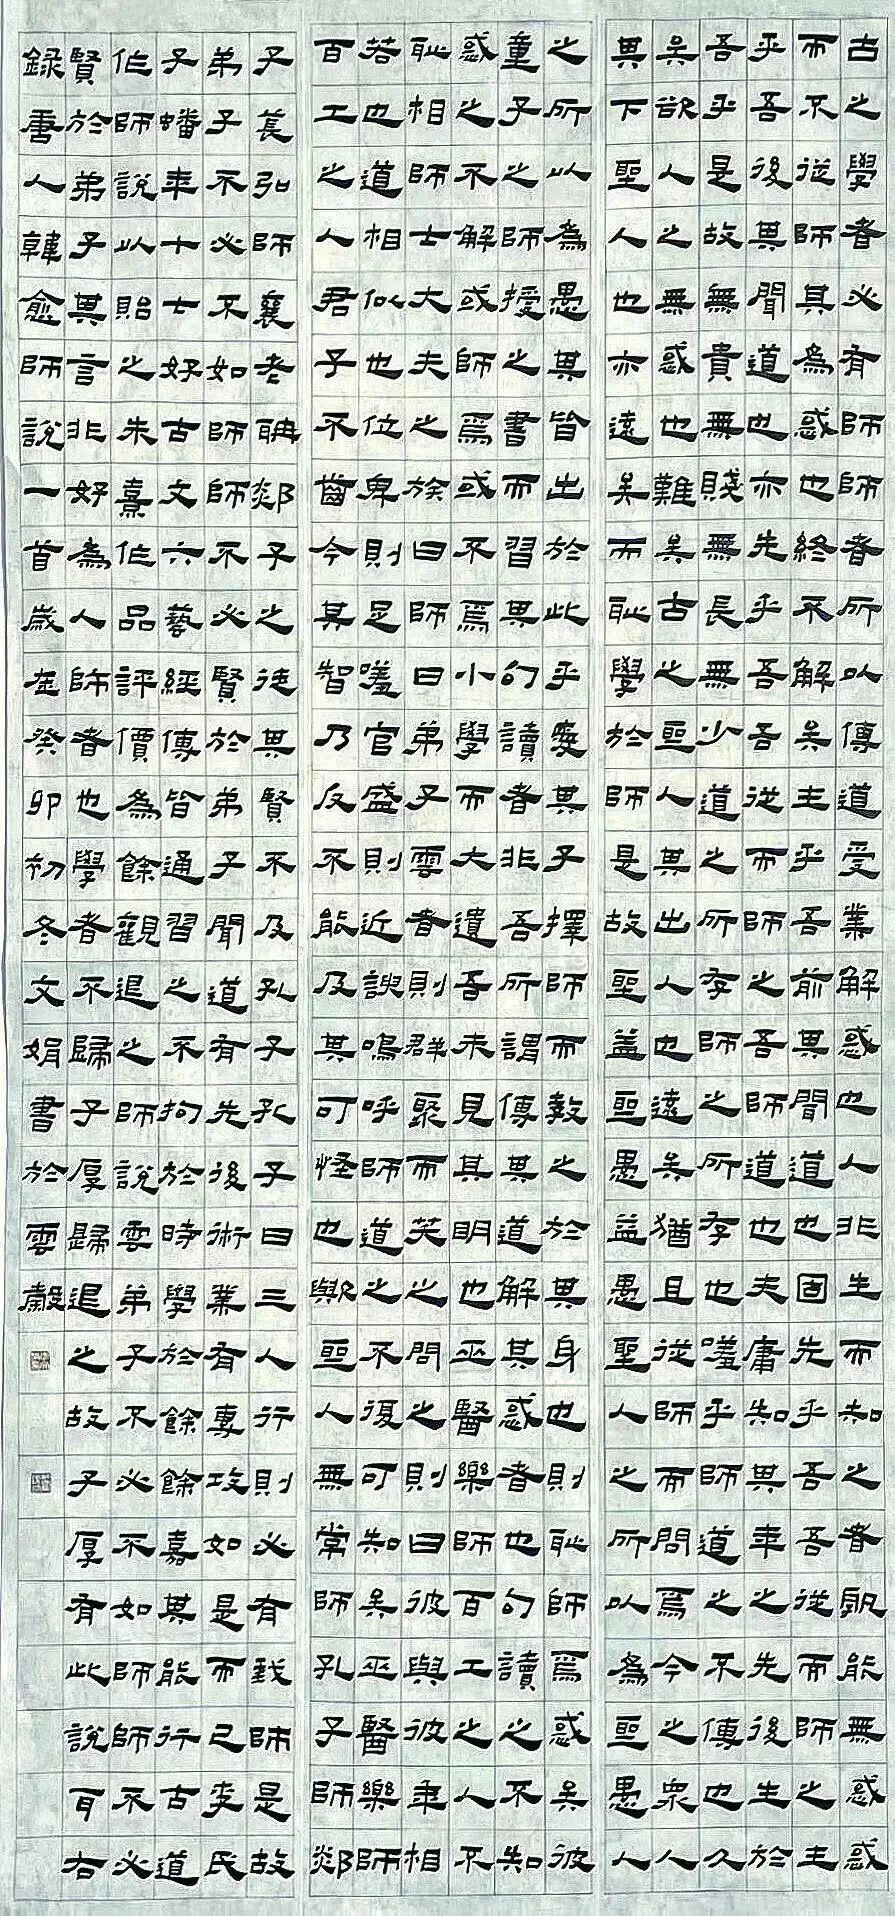 古之學者必有師師者所以傳道受業解惑也人非生而知之者孰能無惑惑
而不從師其為惑也終不解矣生乎吾前其聞道也固先乎吾吾從而師之生
乎吾後其聞道也亦先乎吾吾從而師之吾師道也夫庸知其年之先後生於
吾乎是故無貴無賤無長無少道之所存師之所存也嗟乎師道之不傳也久
矣欲人之無惑也難矣古之聖人其出人也遠矣猶且從師而問焉今之眾人
其下聖人也亦遠矣而恥學於師是故聖益聖愚益愚聖人之所以為聖愚人
之所以為愚其皆出於此乎愛其子擇師而教之於其身也則恥師焉惑矣彼
童子之師授之書而習其句讀者非吾所謂傳其道解其惑者也句讀之不知
惑之不解或師焉或不焉小學而大遺吾未見其明也巫醫樂師百工之人不
恥相師士大夫之族曰師曰弟子雲者則群聚而笑之問之則曰彼與彼年相
若也道相似也位卑則足羞官盛則近諛嗚呼師道之不復可知矣巫醫樂師
百工之人君子不齒今其智乃反不能及其可怪也歟聖人無常師孔子師郯
子萇弘師襄老聃郯子之徒其賢不及孔子孔子曰三人行則必有我師是故
弟子不必不如師師不必賢於弟子聞道有先後術業有專攻如是而已李氏
子蟠年十七好古文六藝經傳皆通習之不拘於時學於餘餘嘉其能行古道
作師說以貽之朱熹作品評價為餘觀退之師說雲弟子不必不如師師不必
賢於弟子其言非好為人師者也學者不歸子厚歸退之故子厚有此說耳右
錄唐人韓愈師說一首歲在癸卯初冬文娟書於雲